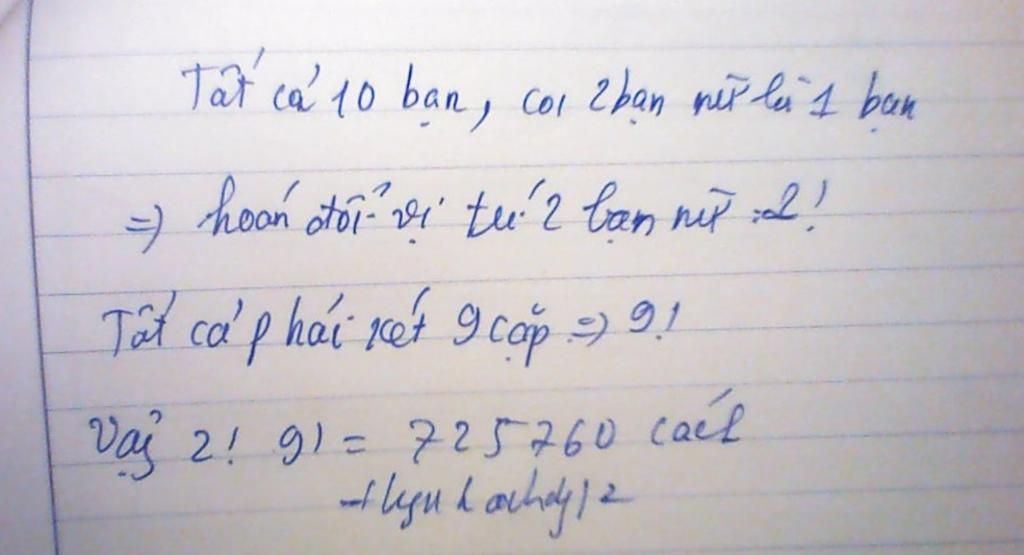 Tất cả 10 bạn, coi 2 bạn nữ là 1 bạn
=) hoán đổi vị trí 2 bạn nữ : 2!
Tất cả phải xét 9 cặp =) 9!
Vậy 2! 9! = 725760 cách